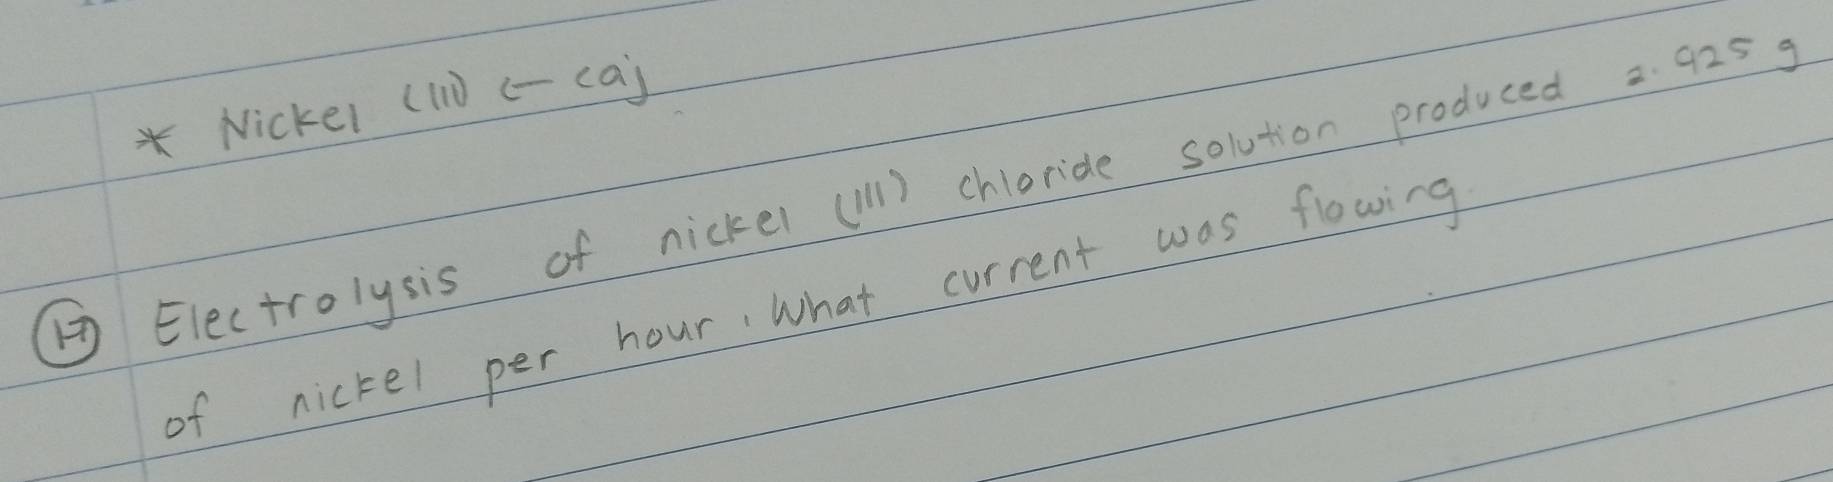 * Nickel (III) ← caj
17 Electrolysis of nickel (III) chloride solution produced 2.925 g
of nickel per hour. What current was flowing.